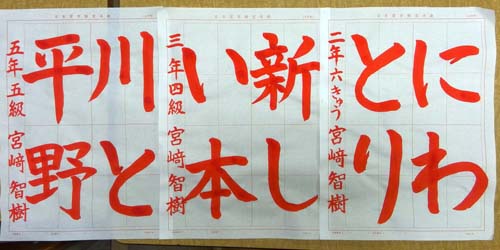 にわ
とり
二年 六きゅう 宮﨑 智樹
新し
い本
三年 四級 宮﨑 智樹
川と
平野
五年 五級 宮﨑 智樹